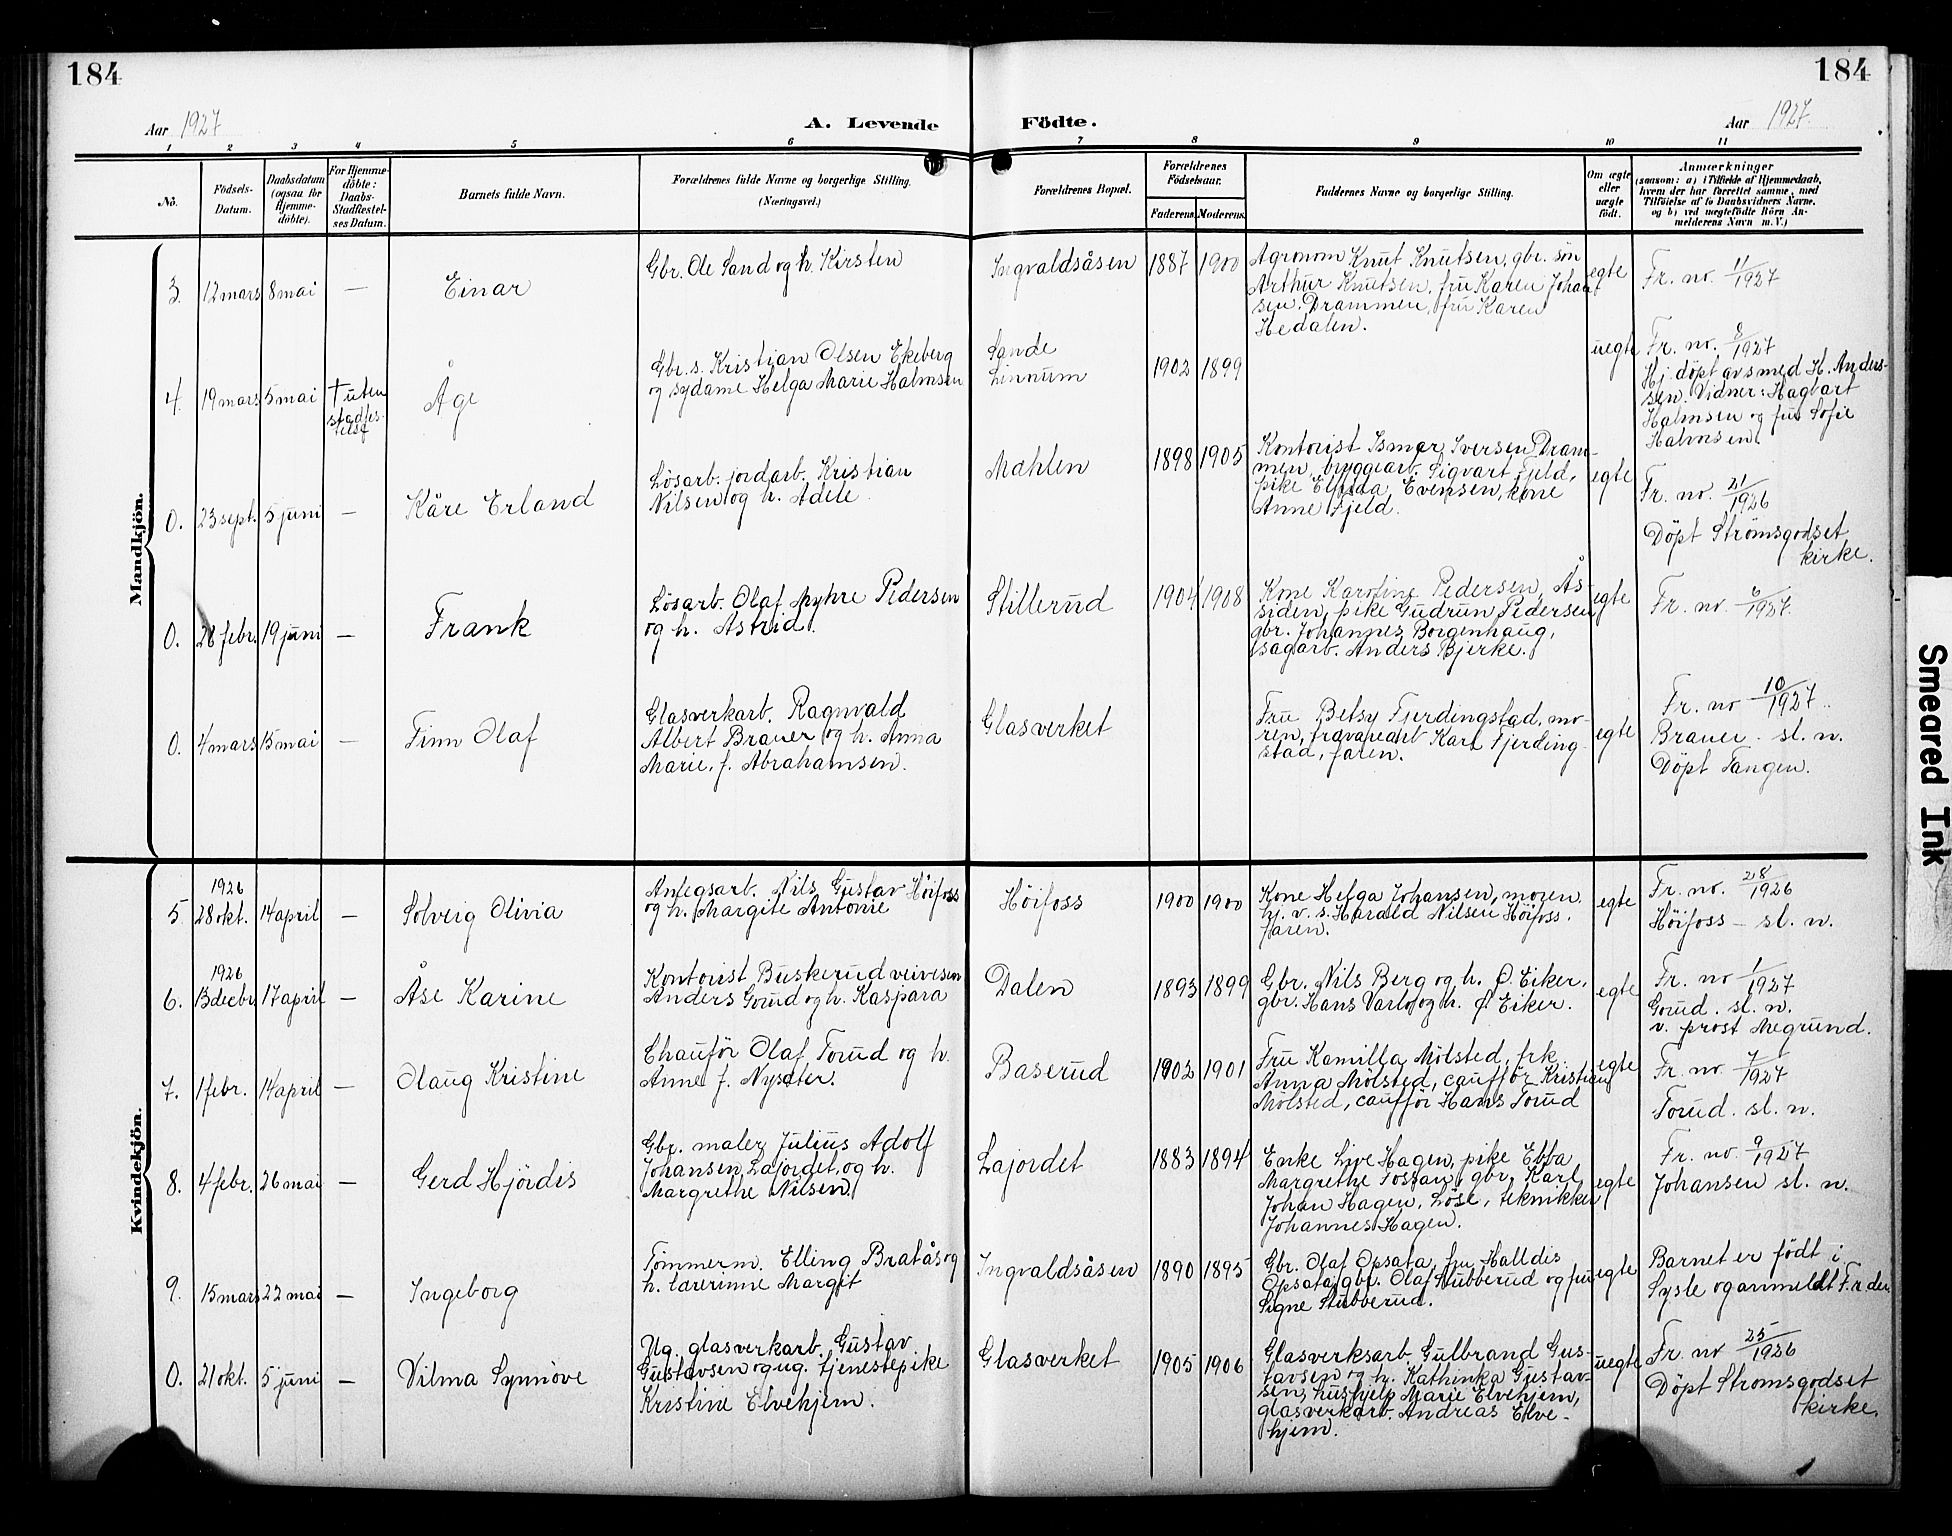 184
184
Aar 1927
A. Levende
Födte.
Aar 1927.
1 2 3 4 5 6 7 8 9 10 11
No.
Födsels-
Datum.
Daabsdatum
(ogsaa for
Hjemme-
döbte).
For Hjemme-
döbte:
Daabs-
Stadfæstel-
ses Datum.
Barnets fulde Navn.
Forældrenes fulde Navne og borgerlige Stilling.
(Næringsvei.)
Forældrenes Bopæl.
Forældrenes
Födselsaar.
Faderens.
Moderens.
Faddernes Navne og borgerlige Stilling.
Om ægte
eller
uægte
födt.
Anmærkninger
(saasom: a) i Tilfælde af Hjemmedaab,
hvem der har forrettet samme, med
Tilföielse af to Daabsvidners Navne,
og b) ved uægtefödte Börn An-
melderens Navn m. V.)
Mandkjön.
3. 12 mars 8 mai — Einar
Gbr. Ole Sand og h. Kirsten
Ingvaldsåsen 1887 1900
Agronom Knut Knutsen, gbr. søn
Arthur Knutsen, fru Karen Johan-
sen. Drammen, fru Karen
Hedalen.
egte
Fr. no. 11/1927
4. 19 mars 5 mai
† uten
stadfes-
telse
Åge
Gbr. s. Kristian Olsen Ekeberg
og sydame Helga Marie Halmsen
Sande
Linnum
1902 1899
uegte
Fr. no. 8/1927
Hj. döpt av smed H. Anders-
sen. Vidner: Hagbart
Halmsen og fru Sofie
Halmsen.
0. 23 sept. 5 juni — Kåre Erland
Løsarb. jordarb. Kristian
Nilsen og h. Adele.
Mæhlen 1898 1905
Kontorist Ismar Iversen, Dram-
men, bryggearb. Sigvart Fjeld,
pike Elfrida Evensen, kone
Anne Fjeld.
egte
Fr. no. 21/1926
Döpt Strömsgodset
kirke.
0. 28 febr. 19 juni — Frank
Løsarb. Olaf Myhre Pedersen
og h. Astrid.
Stillerud 1904 1908
Kone Karoline Pedersen, Ås-
siden, pike Gudrun Pedersen
gbr. Johannes Borgenhaug,
sagarb. Anders Bjerke.
egte
Fr. no. 6/1927.
0. 4 mars 15 mai — Finn Olaf
Glasverkarb. Ragnvald
Albert Brauer og h. Anna
Marie, f. Abrahamsen.
Glasverket
Fru Betsy Fjerdingstad, mo-
ren, travarearb Karl Fjerding-
stad, faren.
egte
Fr. no 10/1927.
Brauer. sl. n.
Döpt Tangen.
Kvindekjön.
5. 1926
28 okt. 14 april — Solveig Olivia
Anlegsarb. Nils Gustav Höifoss
og h. Margite Antonie
Höifoss 1900 1900
Kone Helga Johansen, moren
hj. v. s. Harald Nilsen Höifoss.
faren.
egte
Fr. no. 28/1926
Höifoss — sl. n.
6. 1926
13 decbr 17 april — Åse Karine
Kontorist Buskerud veivesen
Anders Gorud og h. Kaspara
Dalen 1893 1899
Gbr. Nils Berg og h. Ø. Eiker.
gbr. Hans Varlo og h. Ø. Eiker.
egte
Fr. no 1/1927
Gorud. sl. n.
v. prost Megrund.
7. 1 febr. 14 april — Olaug Kristine
Chauför Olaf Torud og h.
Anne f. Nyseter.
Baserud 1902 1901
Fru Kamilla Mølsted, frk.
Anna Mølsted, cauffør Kristian
Mølsted, cauffør Hans Torud
egte
Fr. no 7/1927
Torud. sl. n.
8. 4 febr. 26 mai — Gerd Hjördis
Gbr. maler Julius Adolf
Johansen, Lajordet, og h.
Margrethe Nilsen
Lajordet 1883 1894
Enke Live Hagen, pike Ebba
Margrethe Fossan, gbr. Karl
Johan Hagen, Løse, tekniker
Johannes Hagen.
egte
Fr. no. 9/1927
Johansen sl. n.
9. 15 mars 22 mai — Ingeborg
Tømmerm. Elling Bratås og
h. lærerinne Margit
Ingvaldsåsen 1890 1895
Gbr. Olaf Opsata, fru Halldis
Opsata, gbr. Olaf Stubberud og fru
Signe Stubberud.
egte
Barnet er født i
Sysle og anmeldt Fr. der
0. 21 okt. 5 juni — Vilma Synnöve
Ug. glasverkarb. Gustav
Gustavsen og ug. tjenestepike
Kristine Elvehjem.
Glasverket 1905 1906
Glasverksarb Gulbrand Gus-
tavsen og h. Kathinka Gustav-
sen, hushjelp Marie Elvehjem,
glasverkarb. Andreas Elve-
hjem.
uegte
Fr. no 25/1926
Döpt Strömsgodset
kirke.
Smeared Ink